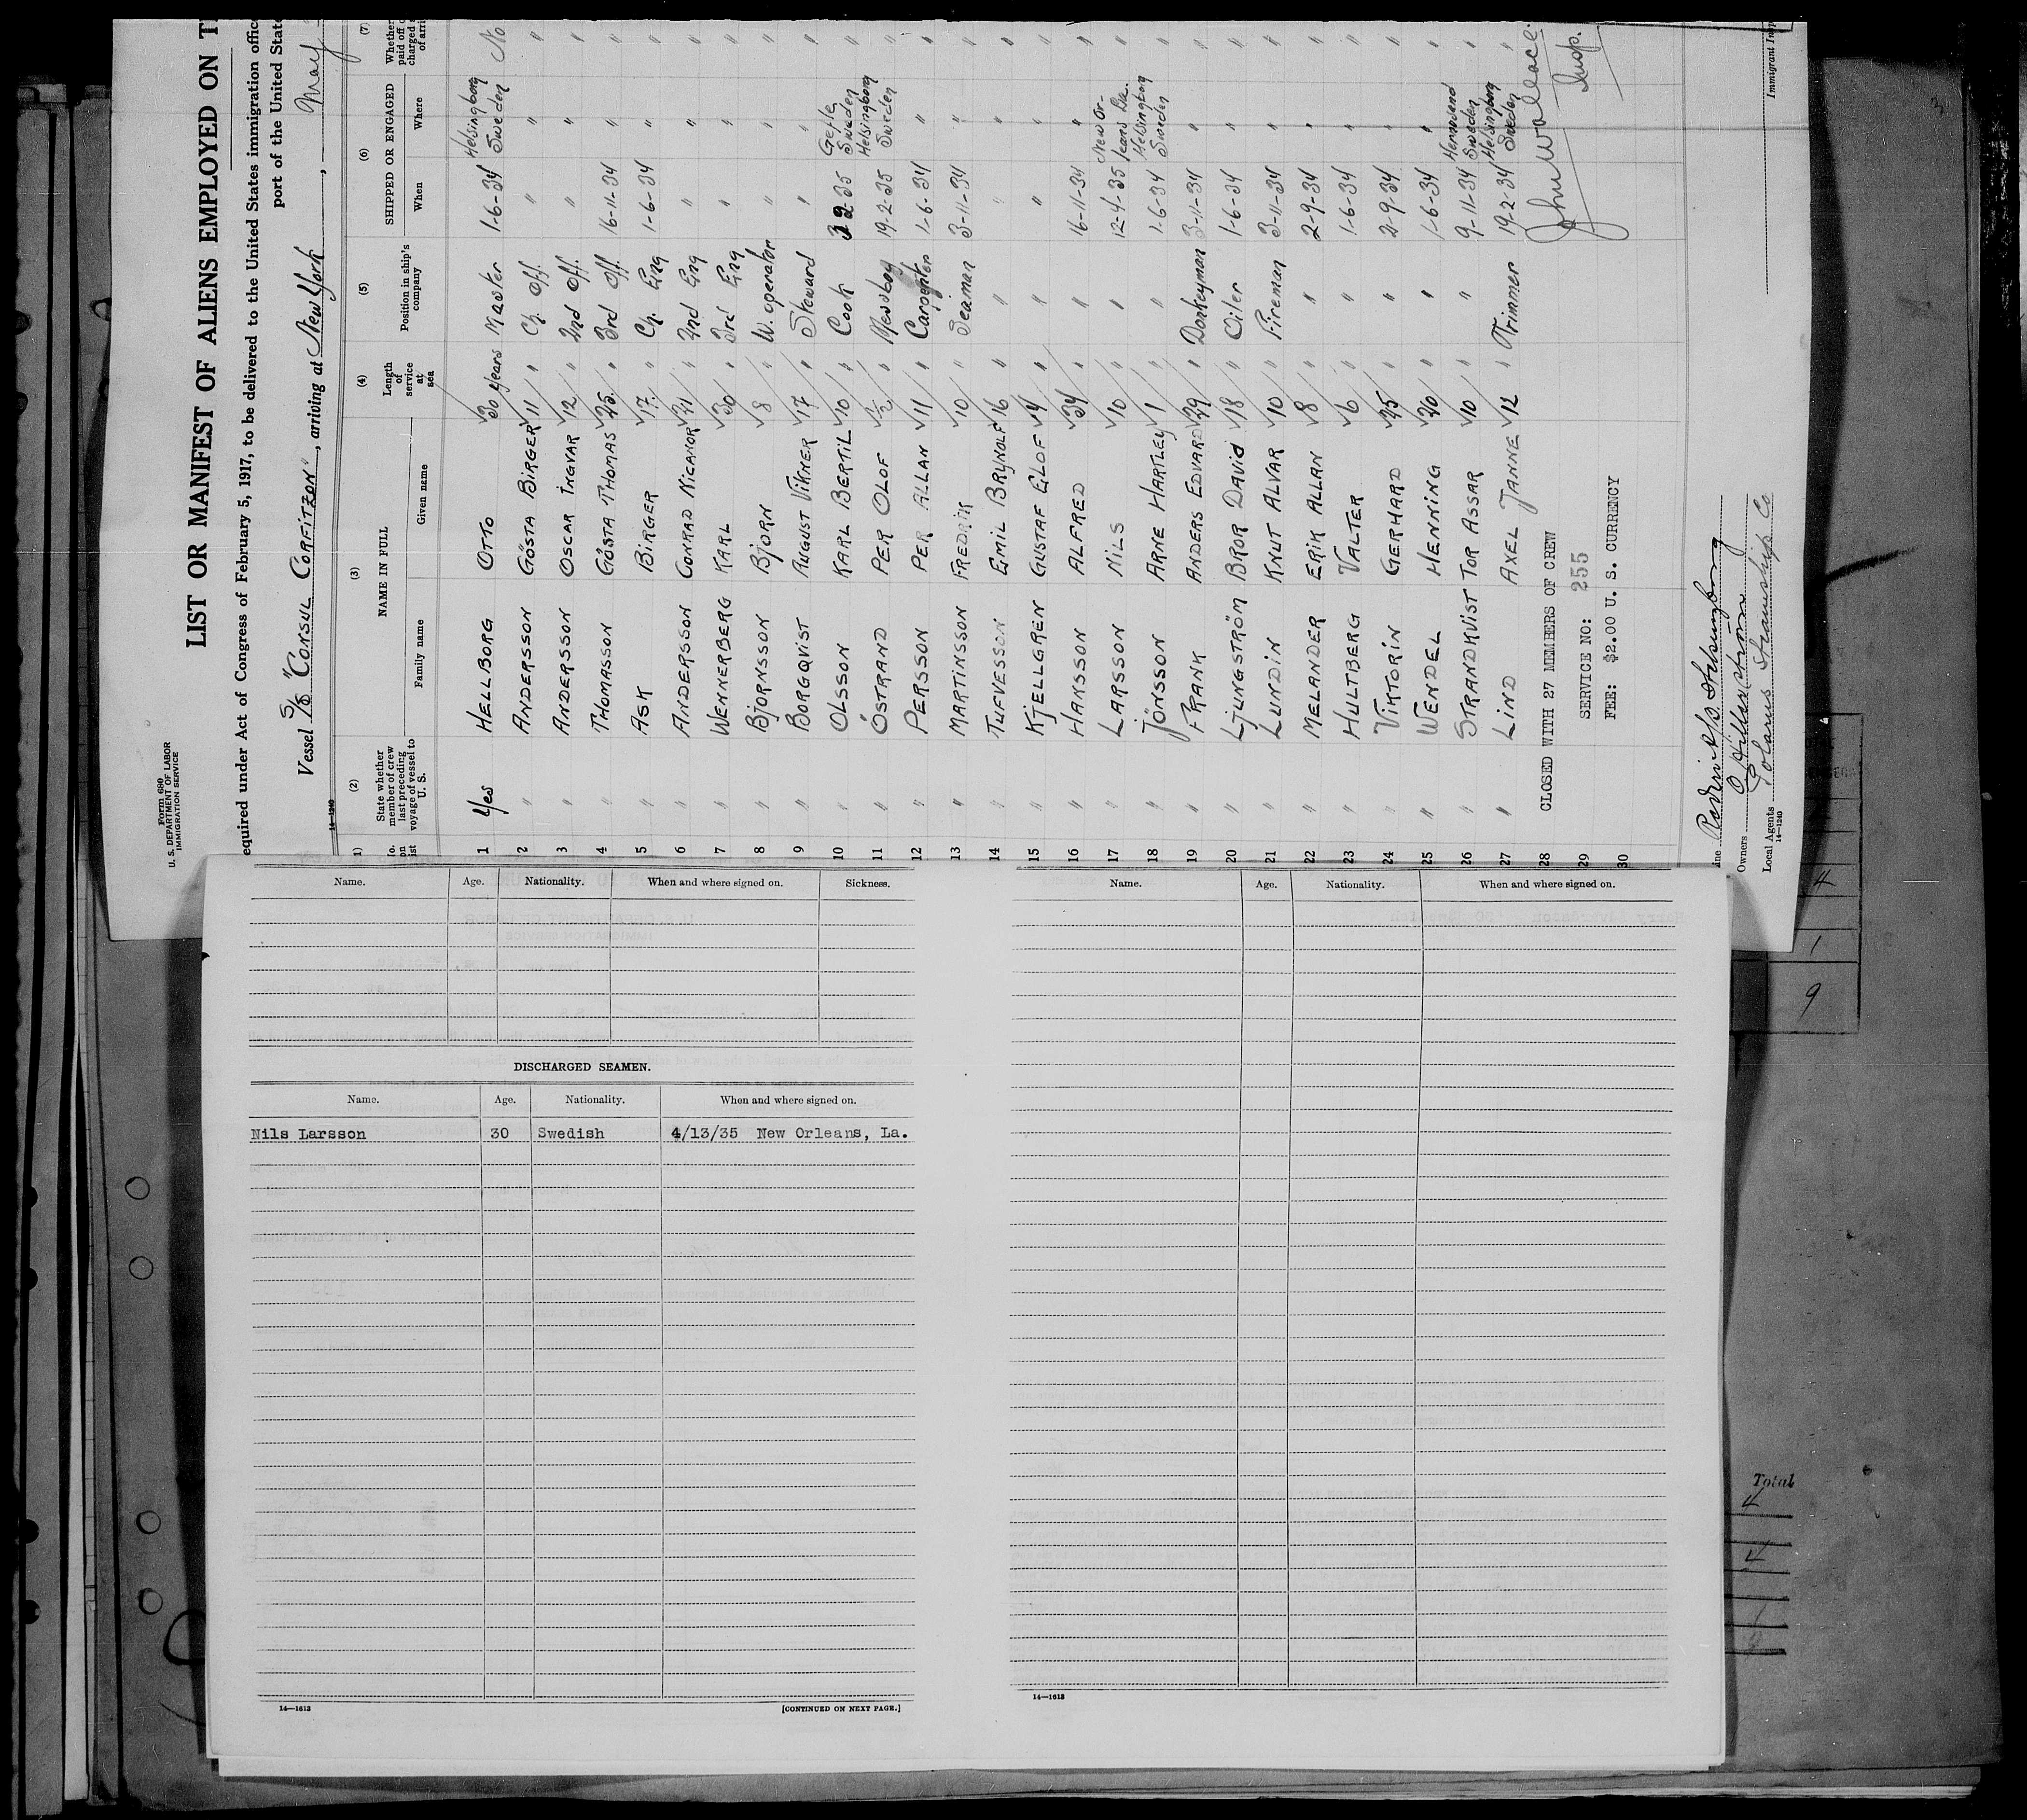 Form 680
U. S. DEPARTMENT OF LABOR
IMMIGRATION SERVICE
LIST OR MANIFEST OF ALIENS EMPLOYED ON T
equired under Act of Congress of February 5, 1917, to be delivered to the United States immigration office
port of the United State
Vessel S/S "CONSUL CORFITZON", arriving at New York, May
14—1240
1) (2) (3) (4) (5) (6) (7)
o. on ist State whether member of crew last preceding voyage of vessel to U. S. NAME IN FULL Length of service at sea Position in ship's company SHIPPED OR ENGAGED Whether paid off o charged a of arri
Family name Given name When Where
1 Yes HELLBORG OTTO 30 years Master 1-6-34 Helsingborg Sweden No
2 " ANDERSSON GÖSTA BIRGER 11 " Ch. Off. " " "
3 " ANDERSSON OSCAR INGVAR 12 " 2nd Off. " " "
4 " THOMASSON GÖSTA THOMAS 25 " 3rd Off. 16-11-34 " "
5 " ASK BIRGER 17 " Ch. Eng 1-6-34 " "
6 " ANDERSSON CONRAD NICANOR 21 " 2nd Eng " " "
7 " WENNERBERG KARL 30 " 3rd Eng " " "
8 " BJORNSSON BJORN 8 " W. operator " " "
9 " BORGQVIST AUGUST VIKNER 17 " Steward " " "
10 " OLSSON KARL BERTIL 10 " Cook 2-35 Gefle Sweden "
11 " ÖSTRAND PER OLOF ½ " Messboy 19-2-35 Helsingborg Sweden "
12 " PERSSON PER ALLAN 11 " Carpenter 1-6-34 " "
13 " MARTINSSON FREDRIK 10 " Seaman 3-11-34 " "
14 " TUFVESSON EMIL BRYNOLF 16 " " " " "
15 " KJELLGREN GUSTAF ELOF 4 " " " " "
16 " HANSSON ALFRED 34 " " 16-11-34 " "
17 " LARSSON NILS 10 " " 12-4-35 New Orleans La. "
18 " JÖNSSON ARNE HARTLEY 1 " " 1-6-34 Helsingborg Sweden "
19 " FRANK ANDERS EDVARD 29 " Donkeyman 3-11-34 " "
20 " LJUNGSTRÖM BROR DAVID 18 " Oiler 1-6-34 " "
21 " LUNDIN KNUT ALVAR 10 " Fireman 3-11-34 " "
22 " MELANDER ERIK ALLAN 8 " " 2-9-34 " "
23 " HULTBERG VALTER 6 " " 1-6-34 " "
24 " VIKTORIN GERHARD 25 " " 2-9-34 " "
25 " WENDEL HENNING 20 " " 1-6-34 " "
26 " STRANDKVIST TOR ASSAR 10 " " 9-11-34 Sweden "
27 " LIND AXEL JANNE 12 " Trimmer 19-2-34 Helsingborg Sweden "
28 CLOSED WITH 27 MEMBERS OF CREW
29 SERVICE NO: 255
30 FEE: $2.00 U. S. CURRENCY
John Wallace
Insp.
Immigrant Insp
ine
Owners
Local Agents Polarus Steamship Co
14—1240
Name. Age. Nationality. When and where signed on. Sickness.
DISCHARGED SEAMEN.
Name. Age. Nationality. When and where signed on.
Nils Larsson 30 Swedish 4/13/35 New Orleans, La.
14—1613
[CONTINUED ON NEXT PAGE.]
Name. Age. Nationality. When and where signed on.
14—1613
4
1
9
Total
4
4